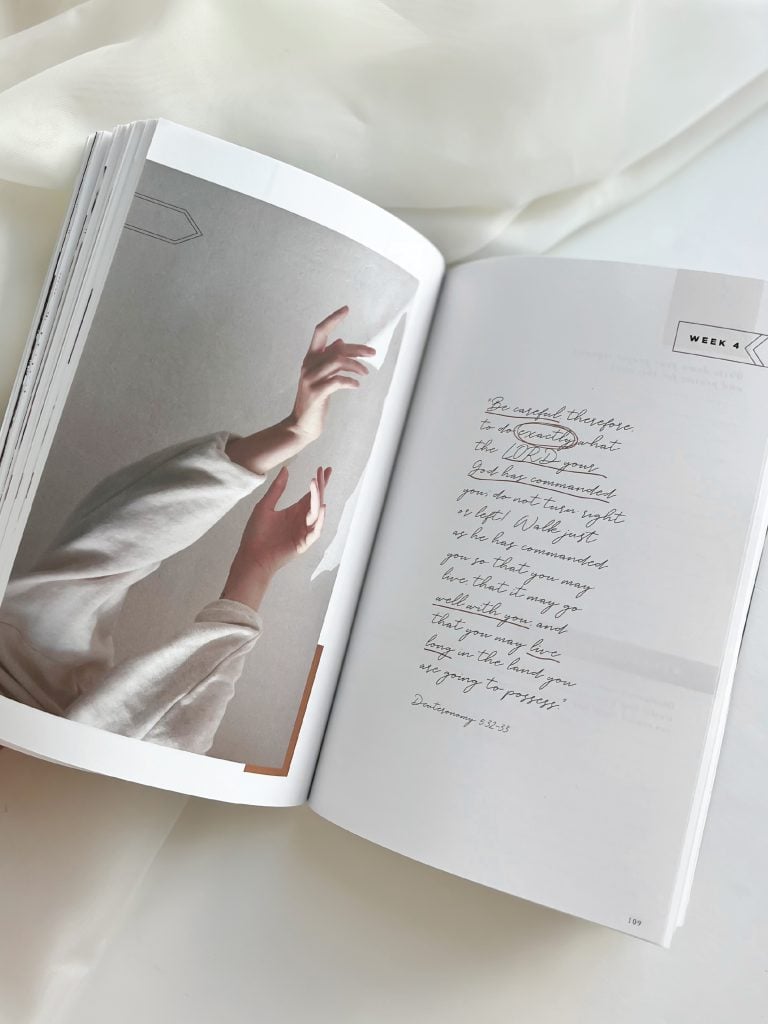 WEEK 4
"Be careful, therefore,
to do exactly what
the LORD your
God has commanded
you; do not turn right
or left! Walk just
as he has commanded
you so that you may
live, that it may go
well with you, and
that you may live
long in the land you
are going to possess."
Deuteronomy 5:32-33
109